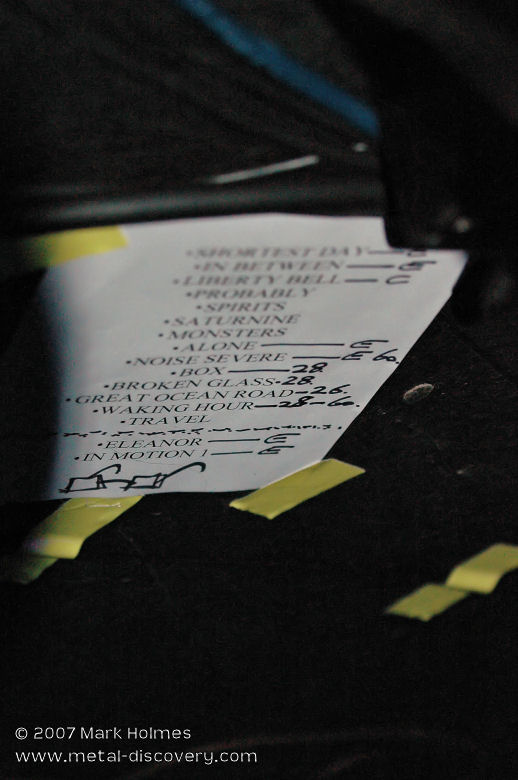 •SHORTEST DAY—E
•IN BETWEEN — E
•LIBERTY BELL — C
•PROBABLY
•SPIRITS
•SATURNINE
•MONSTERS
•ALONE — E
•NOISE SEVERE — E 60.
•BOX — 28.
•BROKEN GLASS • 28.
•GREAT OCEAN ROAD – 26.
•WAKING HOUR — 28 – 60.
•TRAVEL
•ELEANOR — E
•IN MOTION 1 — E
© 2007 Mark Holmes
www.metal-discovery.com